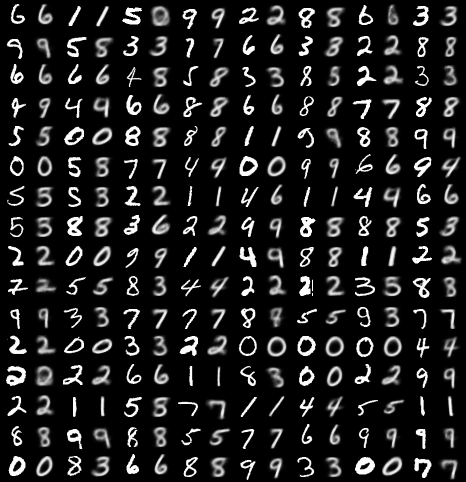 6 6 1 1 5 0 9 9 2 2 8 8 6 6 3 3
9 9 5 8 3 3 7 7 6 6 3 8 2 2 8 8
6 6 6 6 4 8 5 8 3 3 8 5 2 2 3 3
9 9 4 4 6 6 8 8 6 6 8 8 7 7 8 8
5 5 0 0 8 8 8 8 1 1 9 9 8 8 9 9
0 0 5 8 7 7 4 9 0 0 9 9 6 6 9 4
5 5 5 3 2 2 1 1 4 6 1 1 4 4 6 6
5 5 8 8 3 6 2 2 9 9 8 8 8 8 5 3
2 2 0 0 9 9 1 1 4 9 8 8 1 1 2 2
7 2 5 5 8 3 4 4 2 2 2 2 3 5 8 8
9 9 3 3 7 7 7 7 8 9 5 5 9 3 7 7
2 2 0 0 3 3 2 2 0 0 0 0 0 0 4 4
2 0 2 2 6 6 1 1 8 3 0 0 2 2 9 9
2 2 1 1 5 5 7 7 1 1 4 4 5 5 1 1
8 8 9 9 8 8 5 5 7 7 6 6 9 9 9 9
0 0 8 3 6 6 8 8 9 9 3 3 0 0 7 7